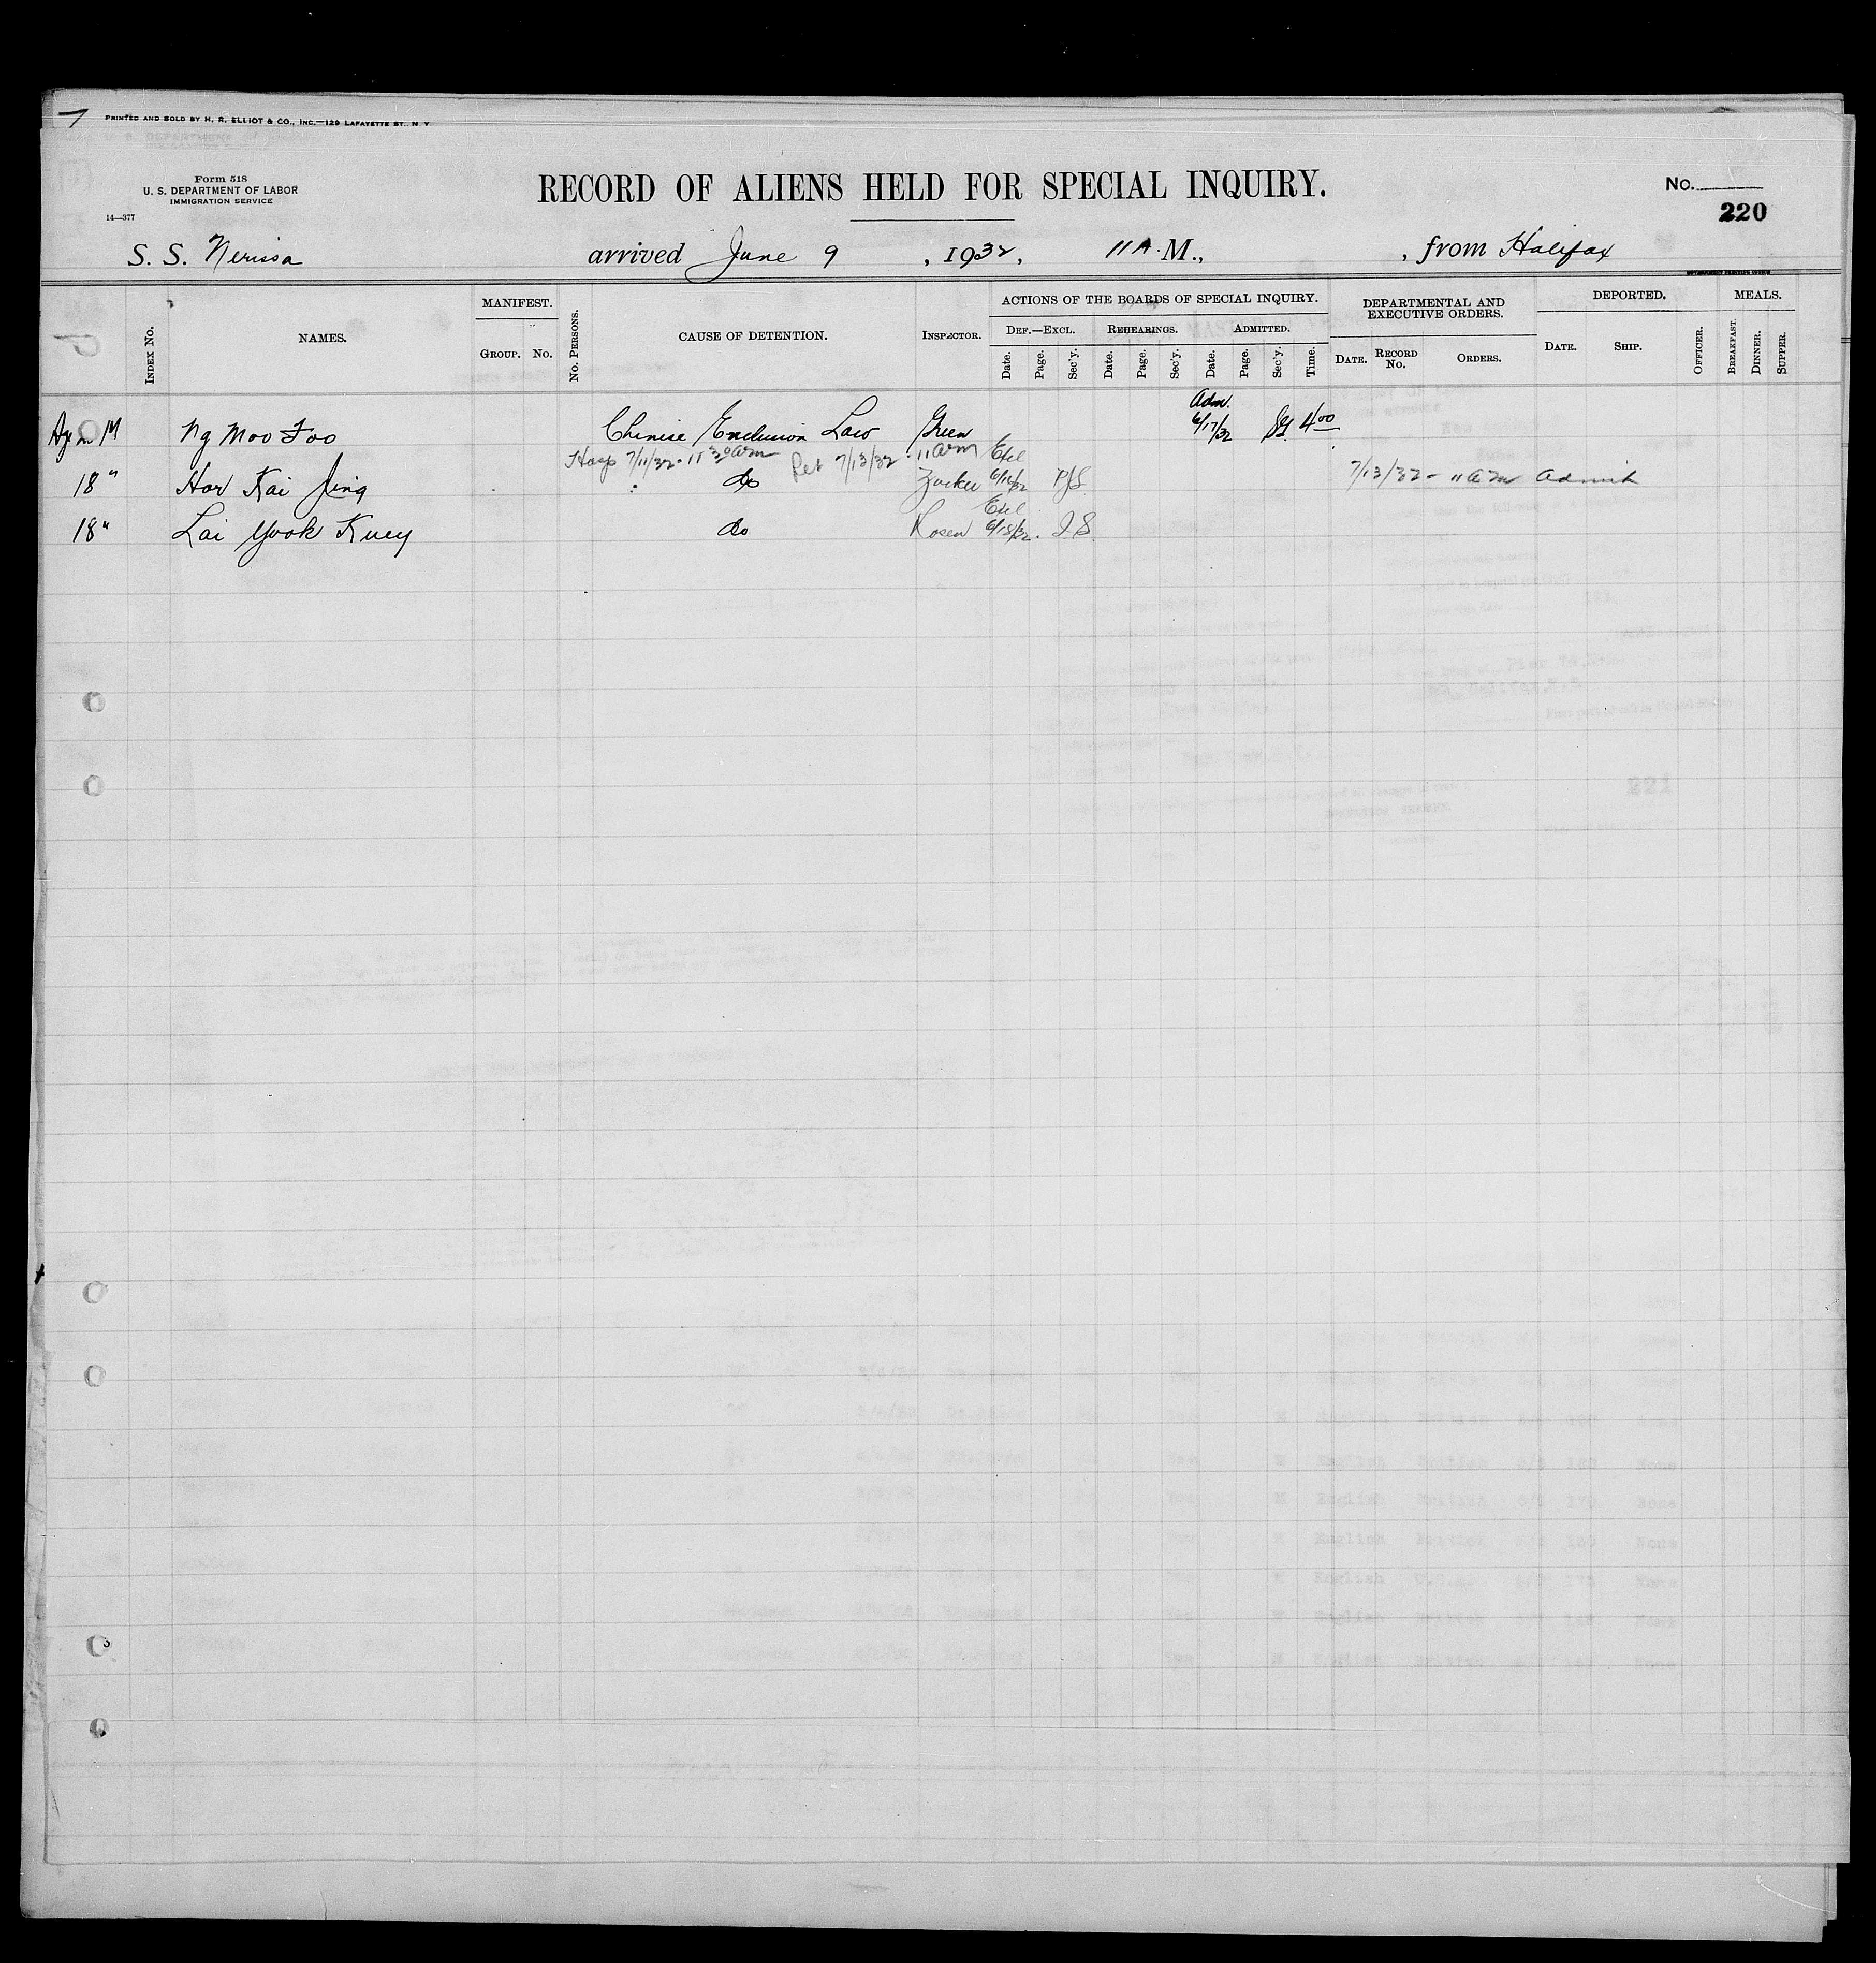 PRINTED AND SOLD BY H. R. ELLIOT & CO., INC.—129 LAFAYETTE ST., N. Y
Form 518
U. S. DEPARTMENT OF LABOR
IMMIGRATION SERVICE
14—377
RECORD OF ALIENS HELD FOR SPECIAL INQUIRY.
No.
220
S. S. Nerissa arrived June 9, 1932, 11 A. M., , from Halifax
INDEX No. NAMES. MANIFEST. GROUP. No. No. PERSONS. CAUSE OF DETENTION. INSPECTOR. ACTIONS OF THE BOARDS OF SPECIAL INQUIRY. DEF.—EXCL. Date. Page. Sec'y. REHEARINGS. Date. Page. Sec'y. ADMITTED. Date. Page. Sec'y. Time. DEPARTMENTAL AND EXECUTIVE ORDERS. DATE. RECORD No. ORDERS. DEPORTED. DATE. SHIP. OFFICER. MEALS. BREAKFAST. DINNER. SUPPER.
Adm.
Ng Moo Foo Chinese Exclusion Law Green 6/17/32 4 00
Hosp 7/11/32 - 11 30 am Ret 7/13/32 - 11 am Excl
18 " Hor Kai Jing do Zucker 6/16/32 PJS 7/13/32 - 11 am Admit
Excl
18 " Lai Yook Kuey do Rosen 6/18/32. I.S.